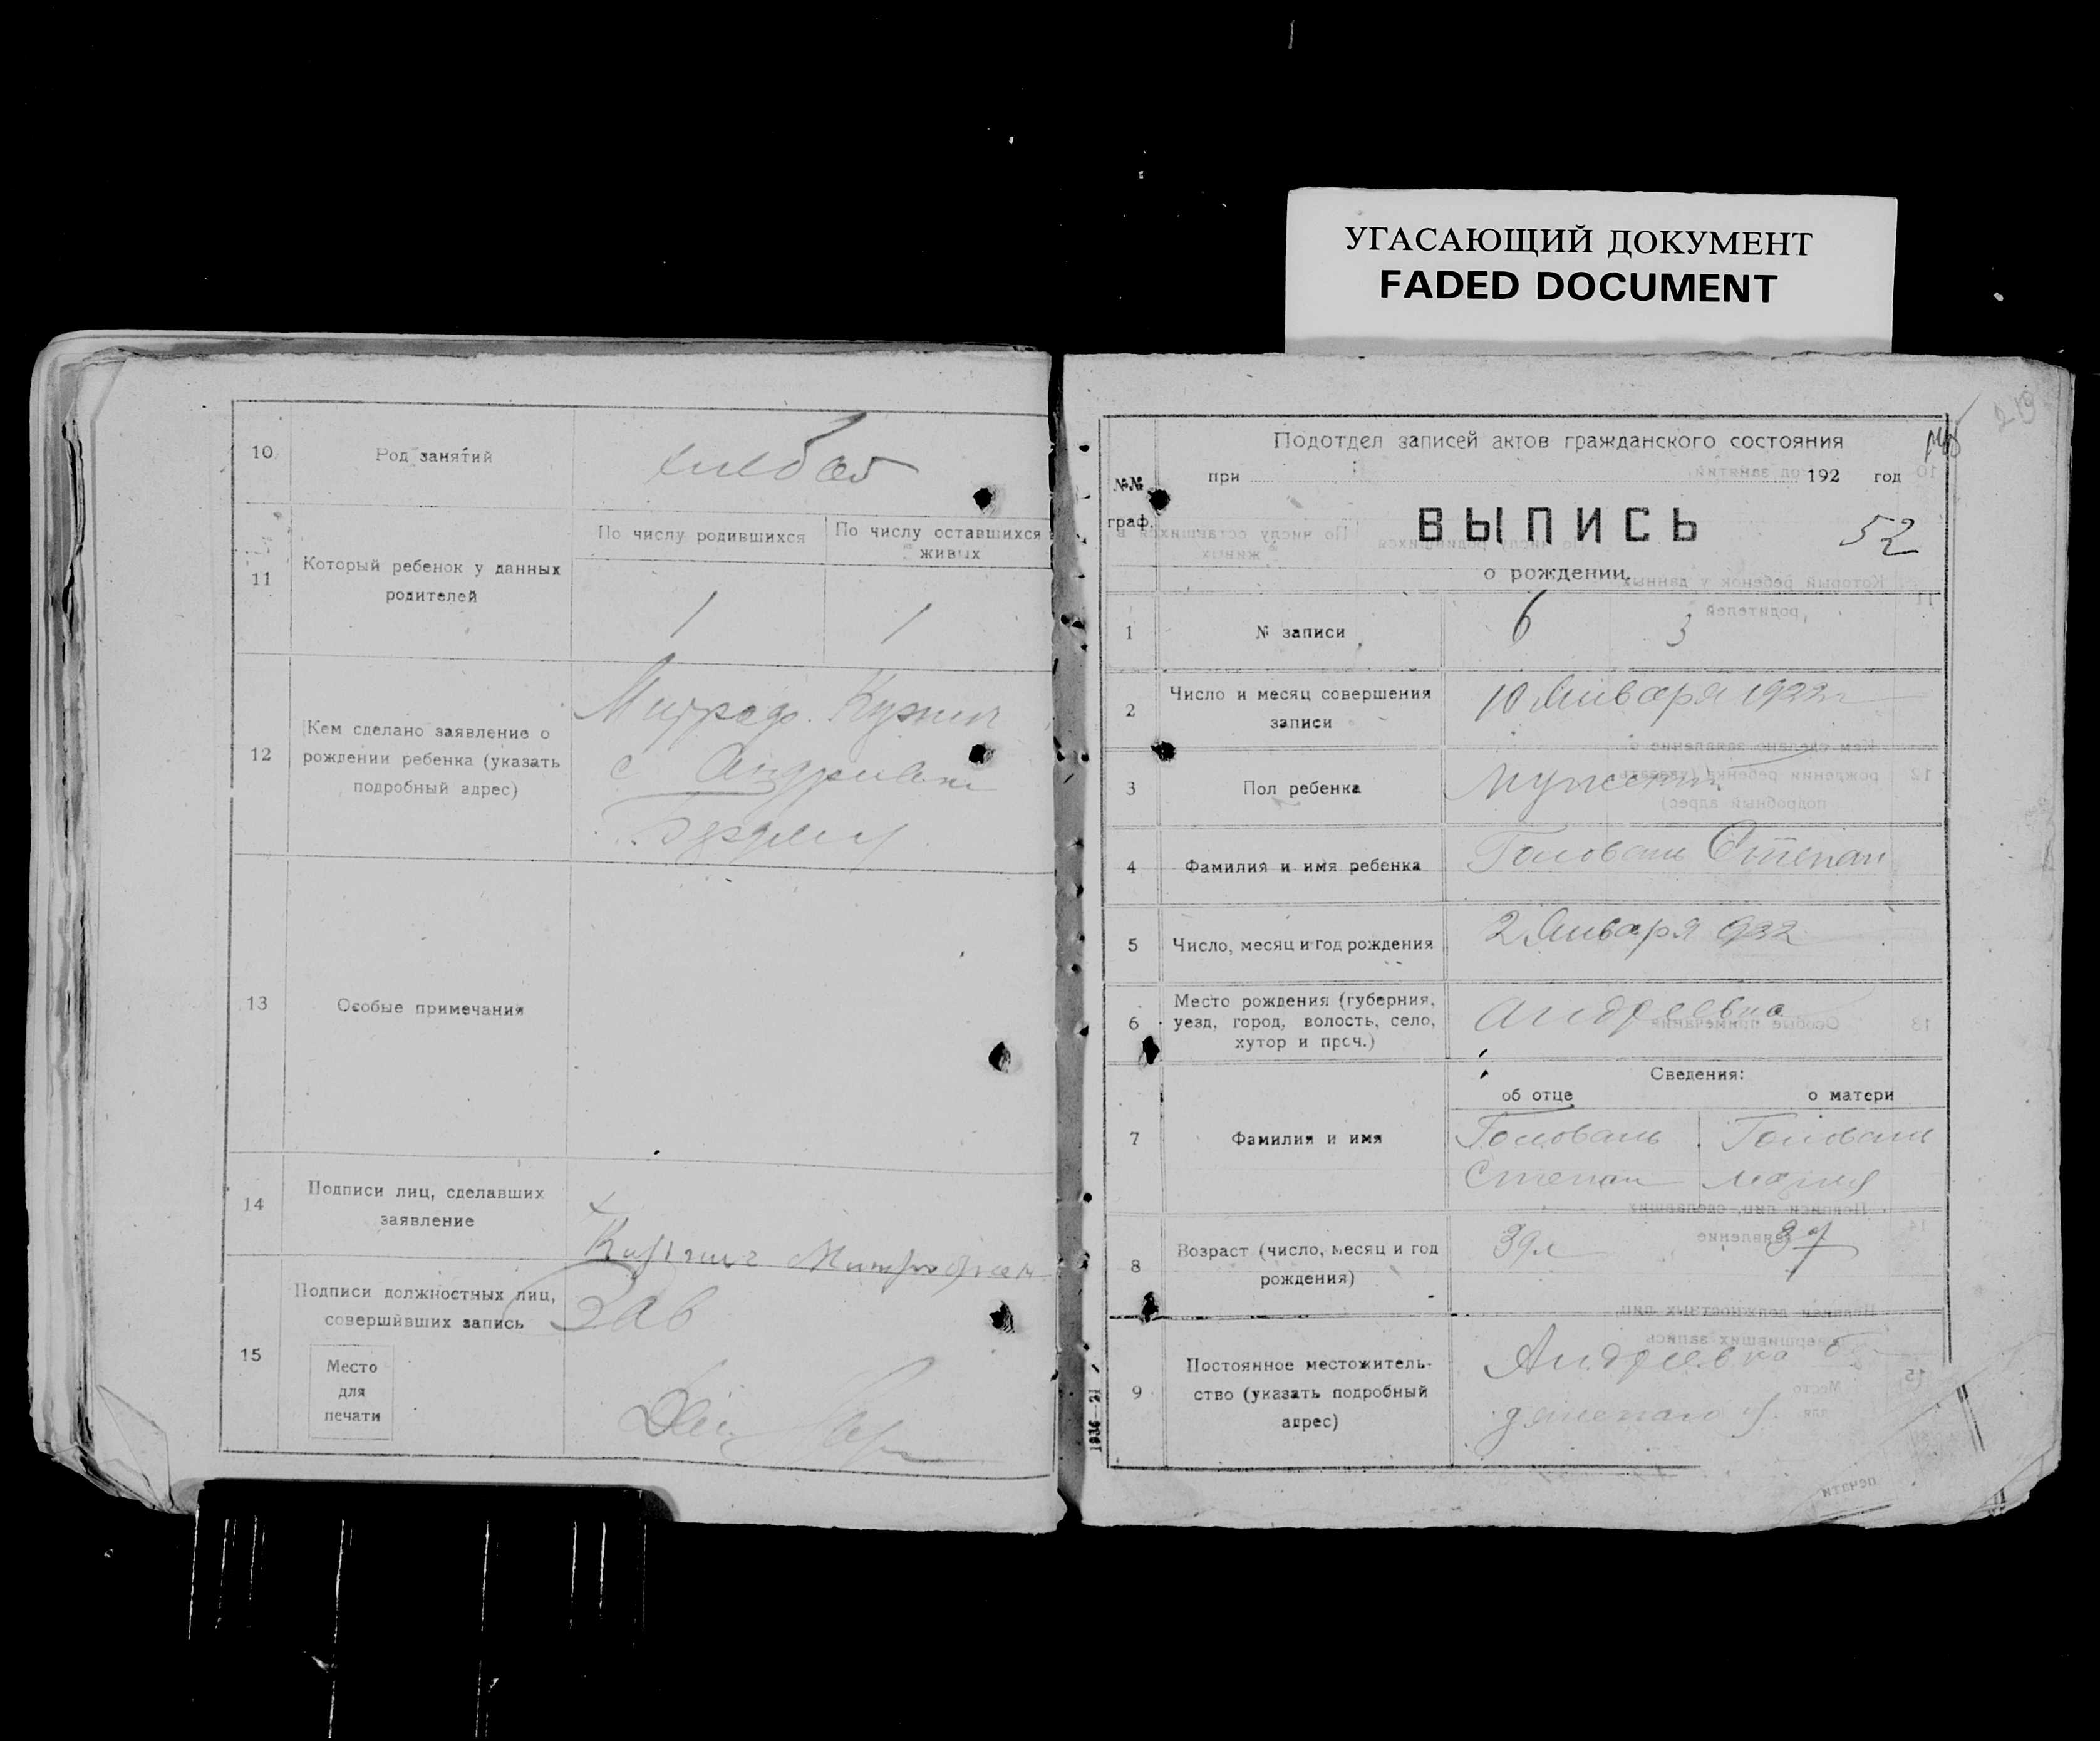 УГАСАЮЩИЙ ДОКУМЕНТ
FADED DOCUMENT
10
Род занятий
11
Который ребенок у данных
родителей
По числу родившихся
По числу оставшихся
живых
1
1
12
Кем сделано заявление о
рождении ребенка (указать
подробный адрес)
с
13
Особые примечания
14
Подписи лиц, сделавших
заявление
Митрофан
15
Подписи должностных лиц,
совершивших запись
Зав
Место
для
печати
219
Подотдел записей актов гражданского состояния
при 192 год
№№
граф.
ВЫПИСЬ
52
о рождении.
1
№ записи
6
3
2
Число и месяц совершения
записи
10 Января 1922г
3
Пол ребенка
4
Фамилия и имя ребенка
Головань Степан
5
Число, месяц и год рождения
2 Января 922
6
Место рождения (губерния,
уезд, город, волость, село,
хутор и проч.)
Андреевка
Сведения:
об отце
о матери
7
Фамилия и имя
Головань
Головань
Степан
Мария
8
Возраст (число, месяц и год
рождения)
39л
9
Постоянное местожитель-
ство (указать подробный
адрес)
Андреевка